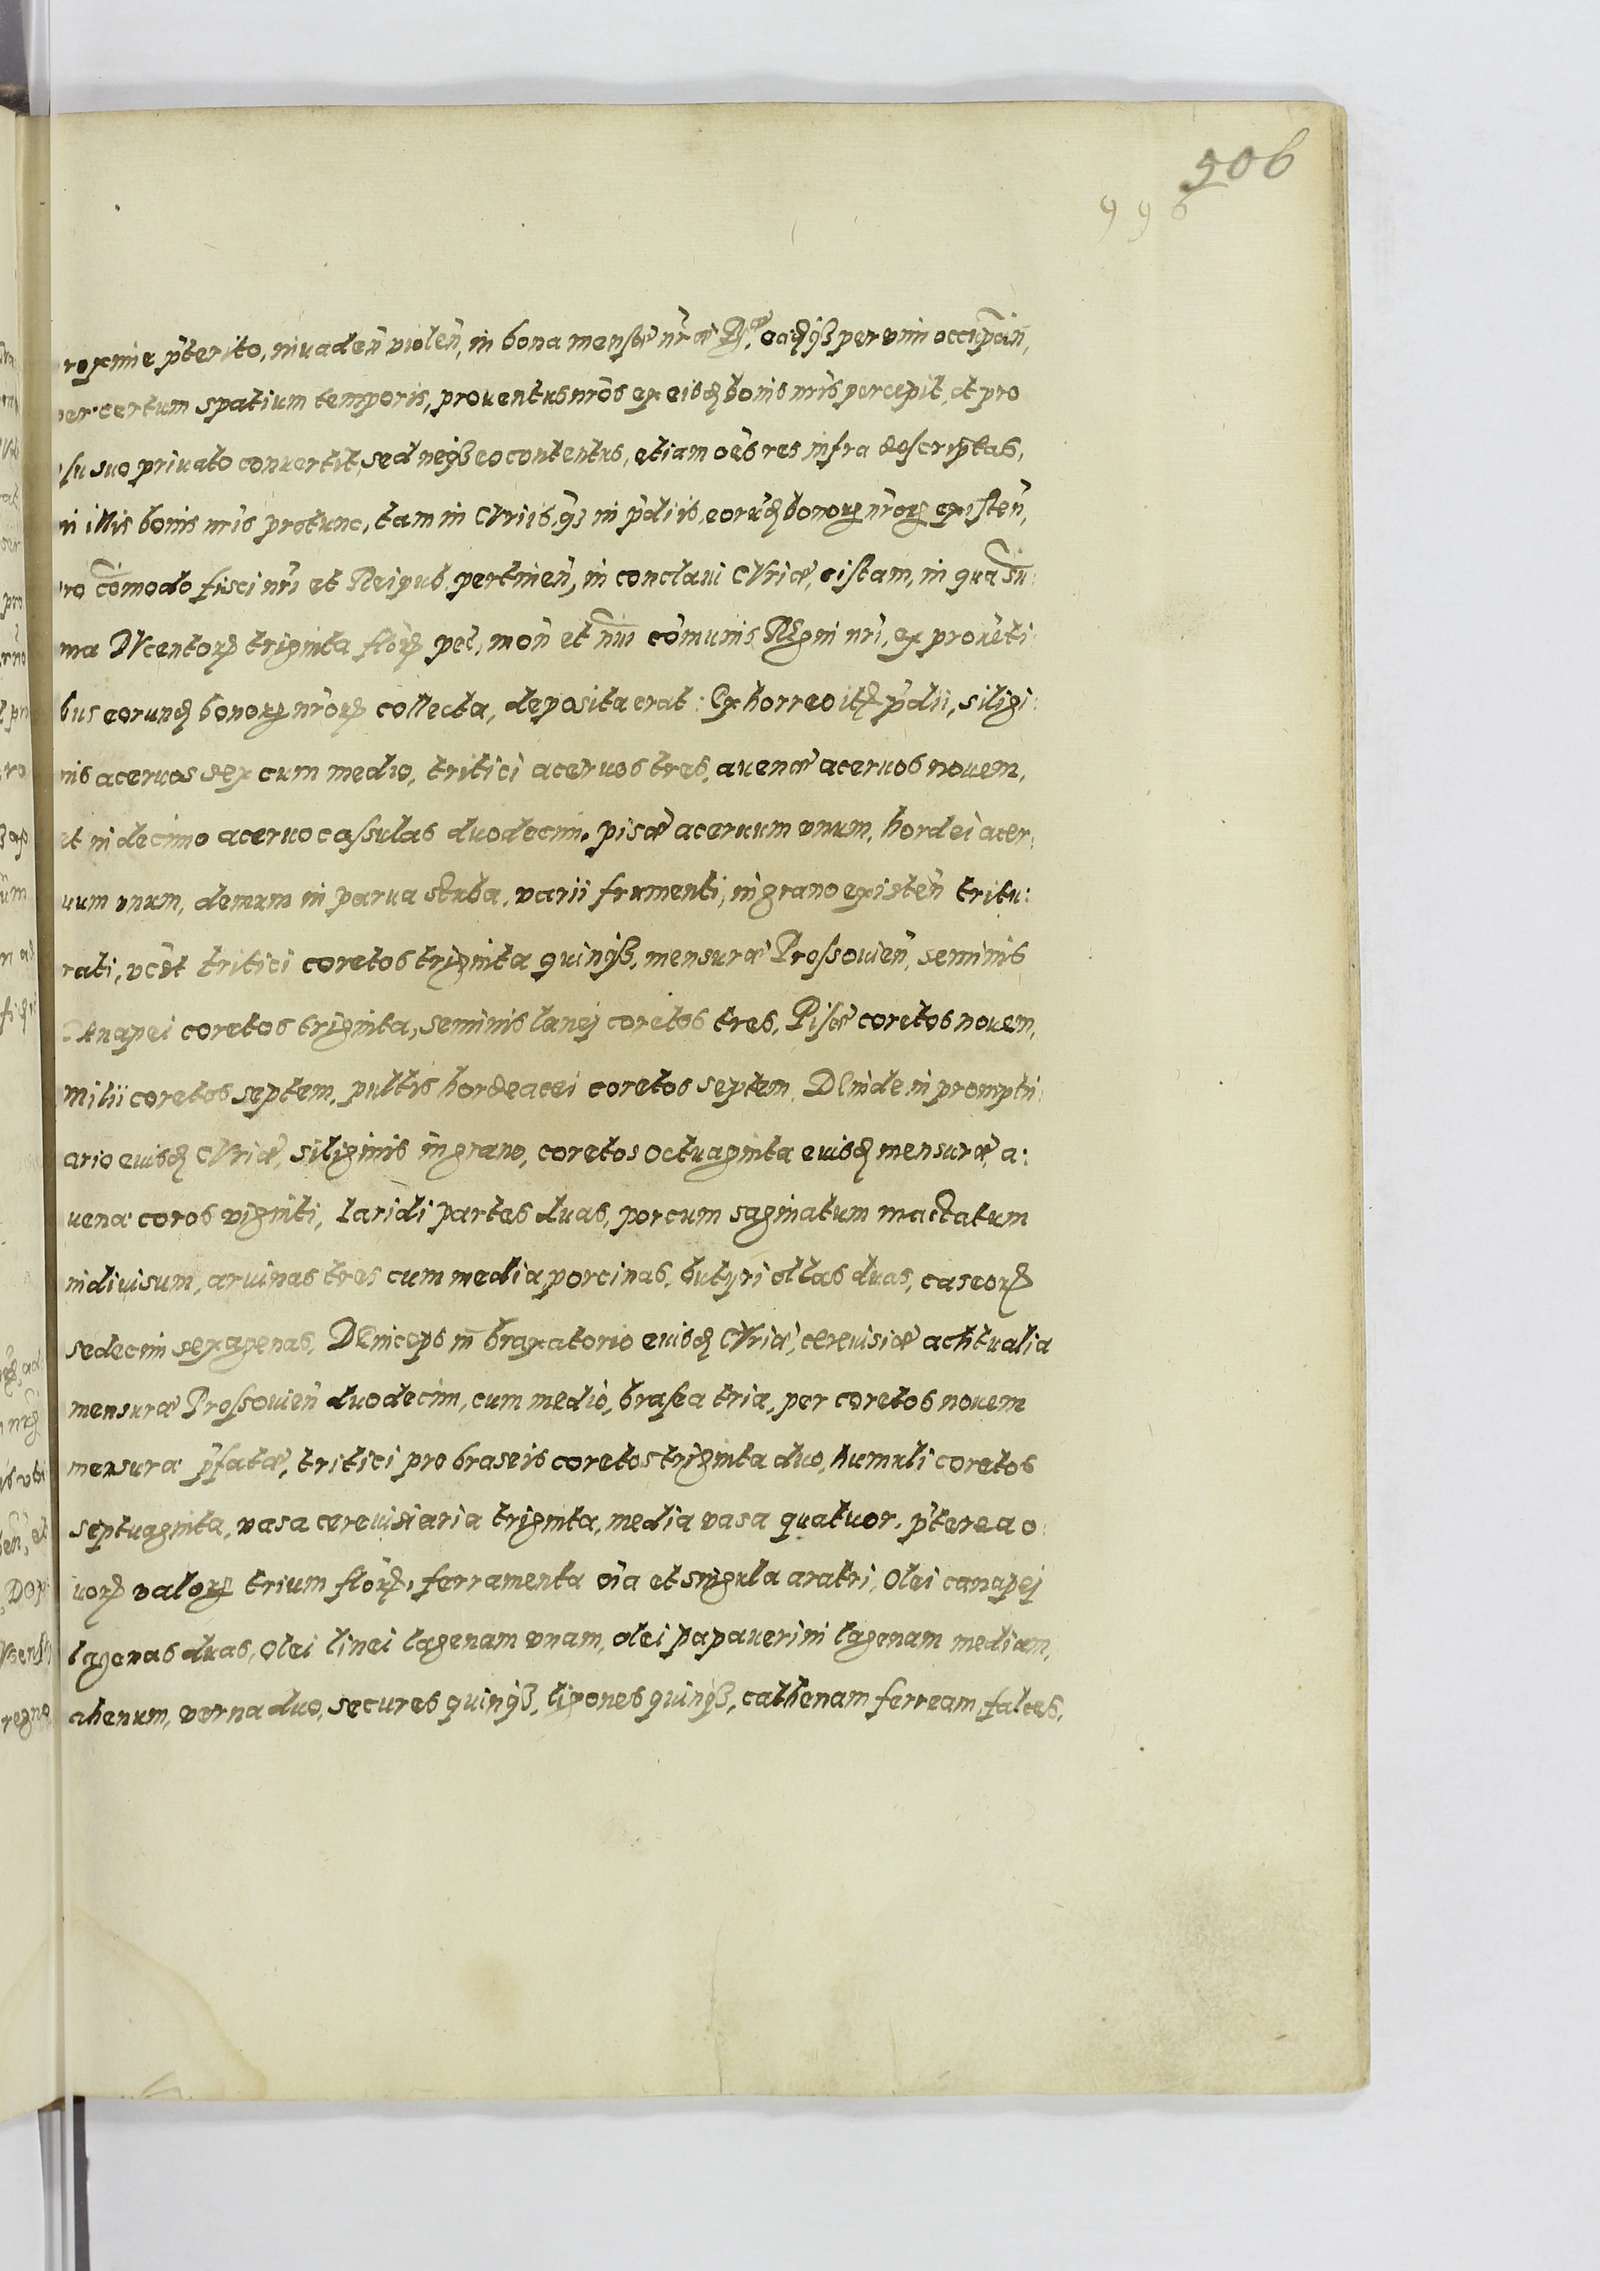 506
996
roxime p̃terito, inuadeñ violeñ, in bona mensæ nr̃æ Rꝫ̃æ, eadꝫq́ꝫ per vim occupãn,
per certum spatium temporis, prouentus nr̃os ex eisdꝫ bonis nr̃is percepit, et pro
vsu suo priuato conuertit, sed neq́ꝫ eo contentus, etiam oẽs res infra descriptas,
in illis bonis nr̃is protunc, tam in CVriis, q̃ꝫ in p̃diis, eorũdꝫ bonorꝝ nr̃orꝝ existeñ,
pro cõmodo fisci nr̃i et Reipub. pertineñ, in conclaui CVriæ, cistam, in qua Sũ:
ma DVcentorꝝ triginta florꝝ pec̃, moñ et nũi cõmunis REgni nr̃i, ex prouẽti:
bus eorundꝫ bonorꝝ nr̃orꝝ collecta, deposita erat: EX horreo itꝫ p̃dii, siligi:
nis aceruos sex cum medio, tritici aceruos tres, auenæ aceruos nouem,
et in decimo aceruo cassulas duodecim, pisæ aceruum vnum, hordei acer:
uum vnum, demum in parua stuba, varii frumenti, in grano existeñ tritu:
rati, vidꝫt tritici coretos triginta quinq́ꝫ, mensuræ Prossouieñ, seminis
CAnapei coretos triginta, seminis lanei coretos tres, Pisæ coretos nouem,
Milii coretos septem, pultis hordeacei coretos septem. DEinde in promptu:
ario eiusdꝫ CVriæ, siliginis in grano, coretos octuaginta eiusdꝫ mensuræ, a:
uenæ coros viginti, laridi partes duas, porcum saginatum mactatum
indiuisum, aruinas tres cum media porcinas, butyri ollas duas, caseorꝝ
sedecim sexagenas, DEinceps in braxatorio eiusdꝫ CVriæ, cereuisiæ achtualia
mensuræ Prossouieñ duodecim, cum medio, brasea tria, per coretos nouem
mensuræ p̃fatæ, tritici pro braseis coretos triginta duo, humuli coretos
septuaginta, vasa cereuisiaria triginta, media vasa quatuor, p̃terea o:
uorꝝ valorꝝ trium florꝝ, ferramenta oĩa et singula aratri, Olei canapei
lagenas duas, Olei linei lagenam vnam, olei papauerini lagenam mediam,
ahenum, verna duo, secures quinq́ꝫ, ligones quinq́ꝫ, cathenam ferream, falces,